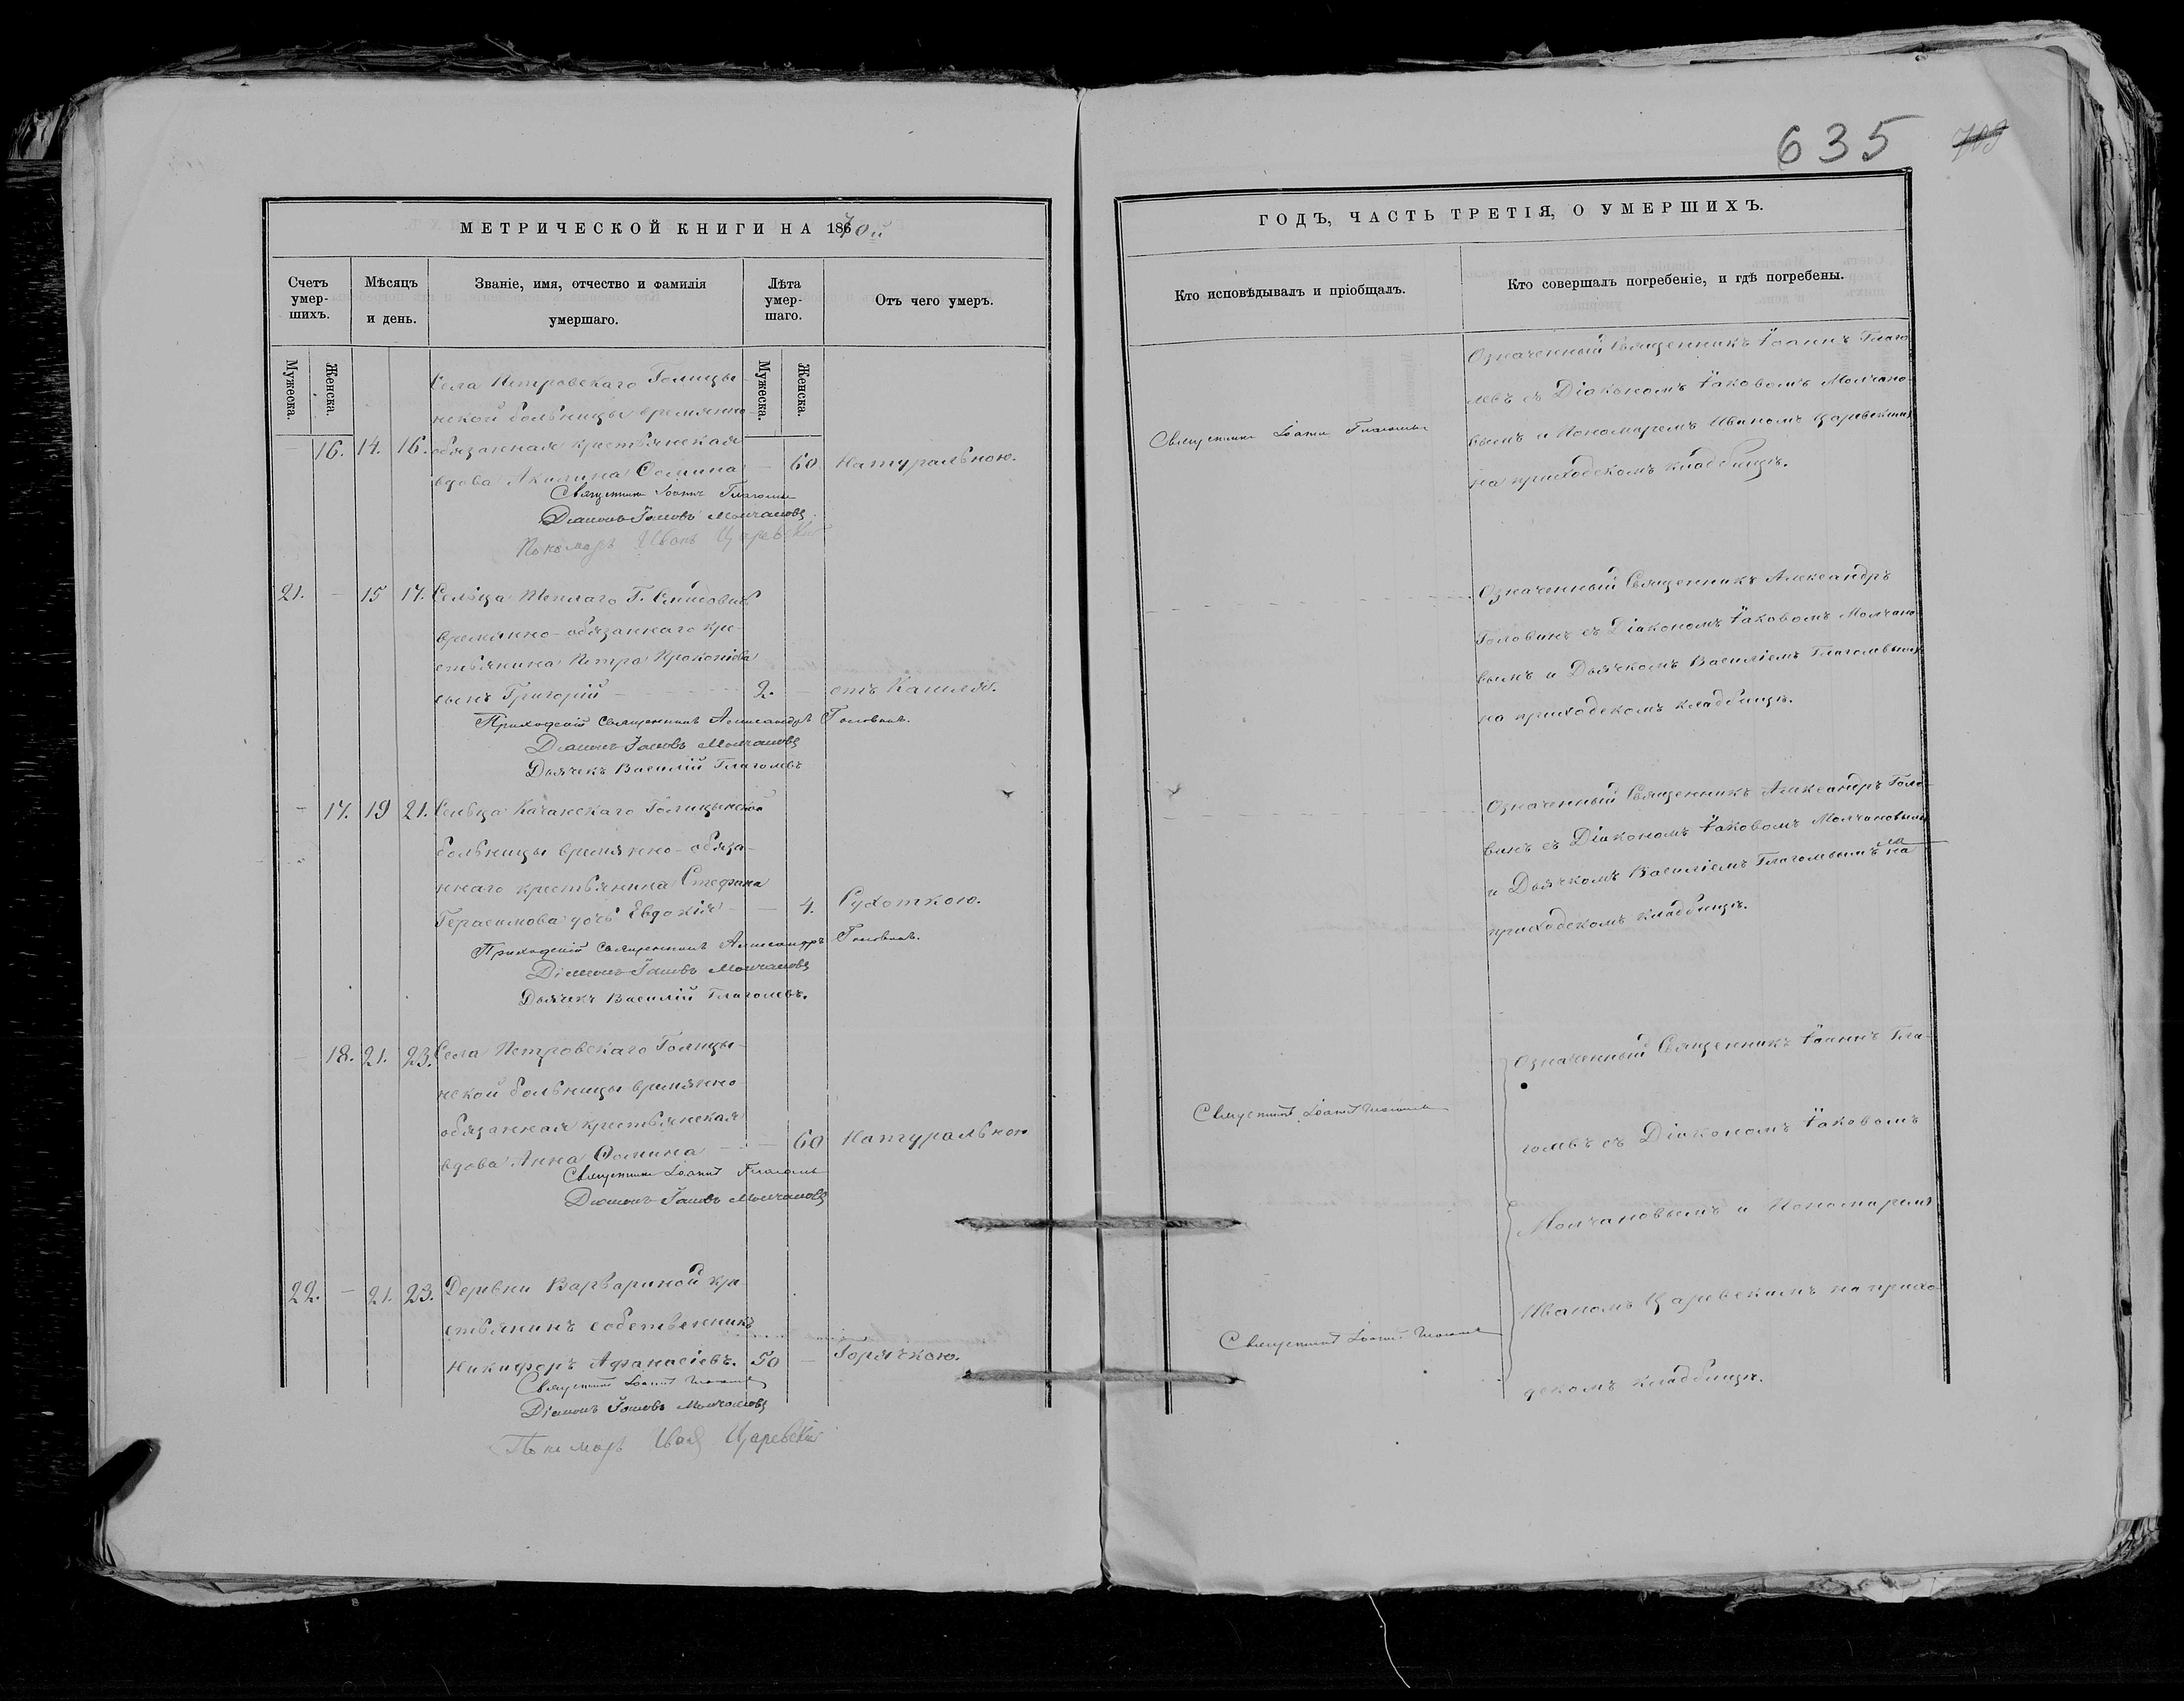 635 703
МЕТРИЧЕСКОЙ КНИГИ НА 1870й
ГОДЪ, ЧАСТЬ ТРЕТІЯ, О УМЕРШИХЪ.
Счетъ умер-
шихъ.
Мѣсяцъ
и день.
Званіе, имя, отчество и фамилія
умершаго.
Лѣта
умер-
шаго.
Отъ чего умеръ.
Кто исповѣдывалъ и пріобщалъ.
Кто совершалъ погребеніе, и гдѣ погребены.
Мужеска.
Женска.
Мужеска.
Женска.
Села Петровскаго Голицы-
нской больницы временно-
16. 14. 16. обязанная крестьянская
вдова Акилина Ѳомина — 60 Натуральною.
Священникъ Іоаннъ Глаголевъ
Діаконъ Іаковъ Молчановъ
Пономарь Иванъ Царевскій
Священникъ Іоаннъ Глаголевъ
Означенный Священникъ Іоаннъ Глаго-
левъ съ Діакономъ Іаковомъ Молчано-
вымъ и Пономаремъ Иваномъ Царевскимъ
на приходскомъ кладбищѣ.
21. — 15 17. Сельца Теплаго Г.
временно-обязаннаго кре-
стьянина Петра Прокопіева
сынъ Григорій 2. — отъ Кашля.
Приходскій Священникъ Александръ Головинъ.
Діаконъ Іаковъ Молчановъ
Дьячекъ Василій Глаголевъ
Означенный Священникъ Александръ
Головинъ съ Діакономъ Іаковомъ Молчано-
вымъ и Дьячкомъ Василіемъ Глаголевымъ
на приходскомъ кладбищѣ.
— 17. 19 21. Сельца Качанскаго Голицынской
больницы временно-обяза-
ннаго крестьянина Стефана
Герасимова дочь Евдокія — 4. Сухоткою.
Приходскій Священникъ Александръ Головинъ.
Діаконъ Іаковъ Молчановъ
Дьячекъ Василій Глаголевъ.
Означенный Священникъ Александръ Голо-
винъ съ Діакономъ Іаковомъ Молчановымъ
и Дьячкомъ Василіемъ Глаголевымъ на
приходскомъ кладбищѣ.
— 18. 21. 23. Села Петровскаго Голицы-
нской больницы временно-
обязанная крестьянская
вдова Анна Ѳомина — 60 Натуральною
Священникъ Іоаннъ Глаголевъ
Діаконъ Іаковъ Молчановъ
Священникъ Іоаннъ Глаголевъ
Означенный Священникъ Іоаннъ Гла-
голевъ съ Діакономъ Іаковомъ
Молчановымъ и Пономаремъ
Иваномъ Царевскимъ на прихо-
дскомъ кладбищѣ.
22. — 21. 23. Деревни Варвариной кре-
стьянинъ собственникъ
Никифоръ Афанасіевъ. 50 — Горячкою.
Священникъ Іоаннъ Глаголевъ
Діаконъ Іаковъ Молчановъ
Пономарь Иванъ Царевскій
Священникъ Іоаннъ Глаголевъ